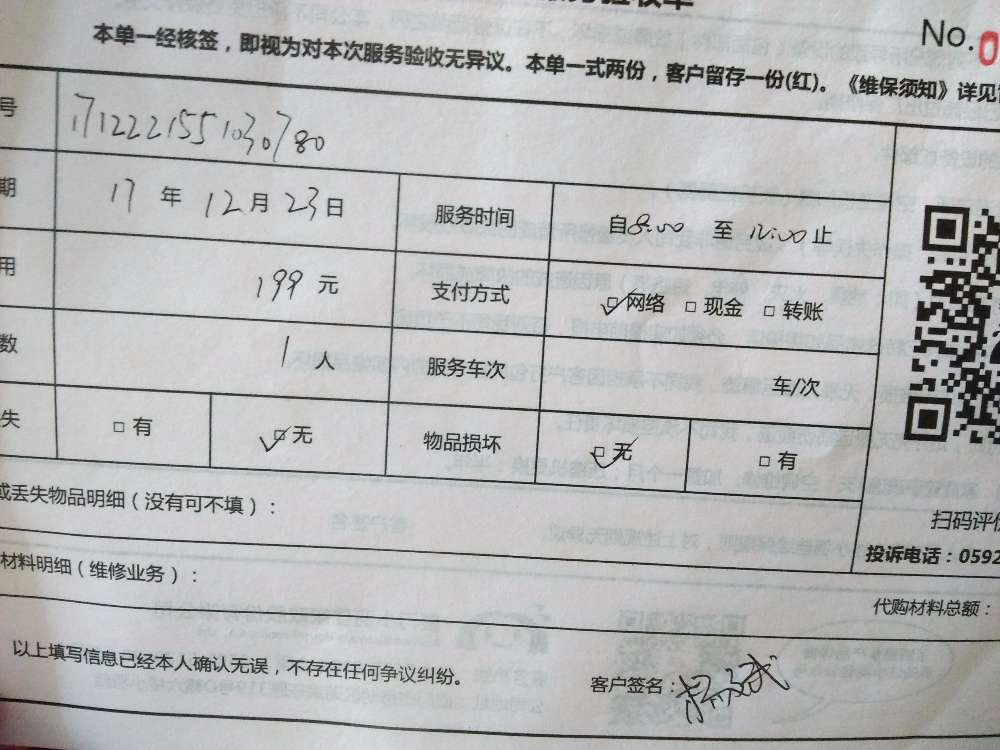 No. 0
本单一经核签，即视为对本次服务验收无异议。本单一式两份，客户留存一份(红)。《维保须知》详见
号 1712221551030780
期 17 年 12 月 23 日 服务时间 自 8:00 至 12:00 止
用 199 元 支付方式 ☑网络 □现金 □转账
数 1 人 服务车次 车/次
失 □有 ☑无 物品损坏 ☑无 □有
或丢失物品明细（没有可不填）：
扫码评价
投诉电话：0592
材料明细（维修业务）：
代购材料总额：
以上填写信息已经本人确认无误，不存在任何争议纠纷。
客户签名：